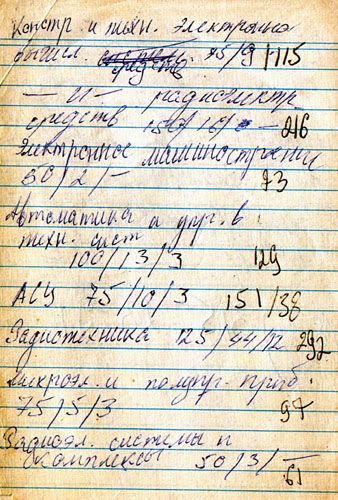 Констр. и техн. электронно
вычисл. средств. 75/9/115
— 〃 — радиоэлектр.
средств 150/16/2 — 216
Электронное машиностроение
50/2/— 73
Автоматика и упр. в
техн. сист
100/13/3 129
АСУ 75/10/3 151/38
Радиотехника 125/44/12 292
Микроэл. и полупр. приб.
75/5/3 97
Радиоэл. системы и
комплексы 50/3/—
61